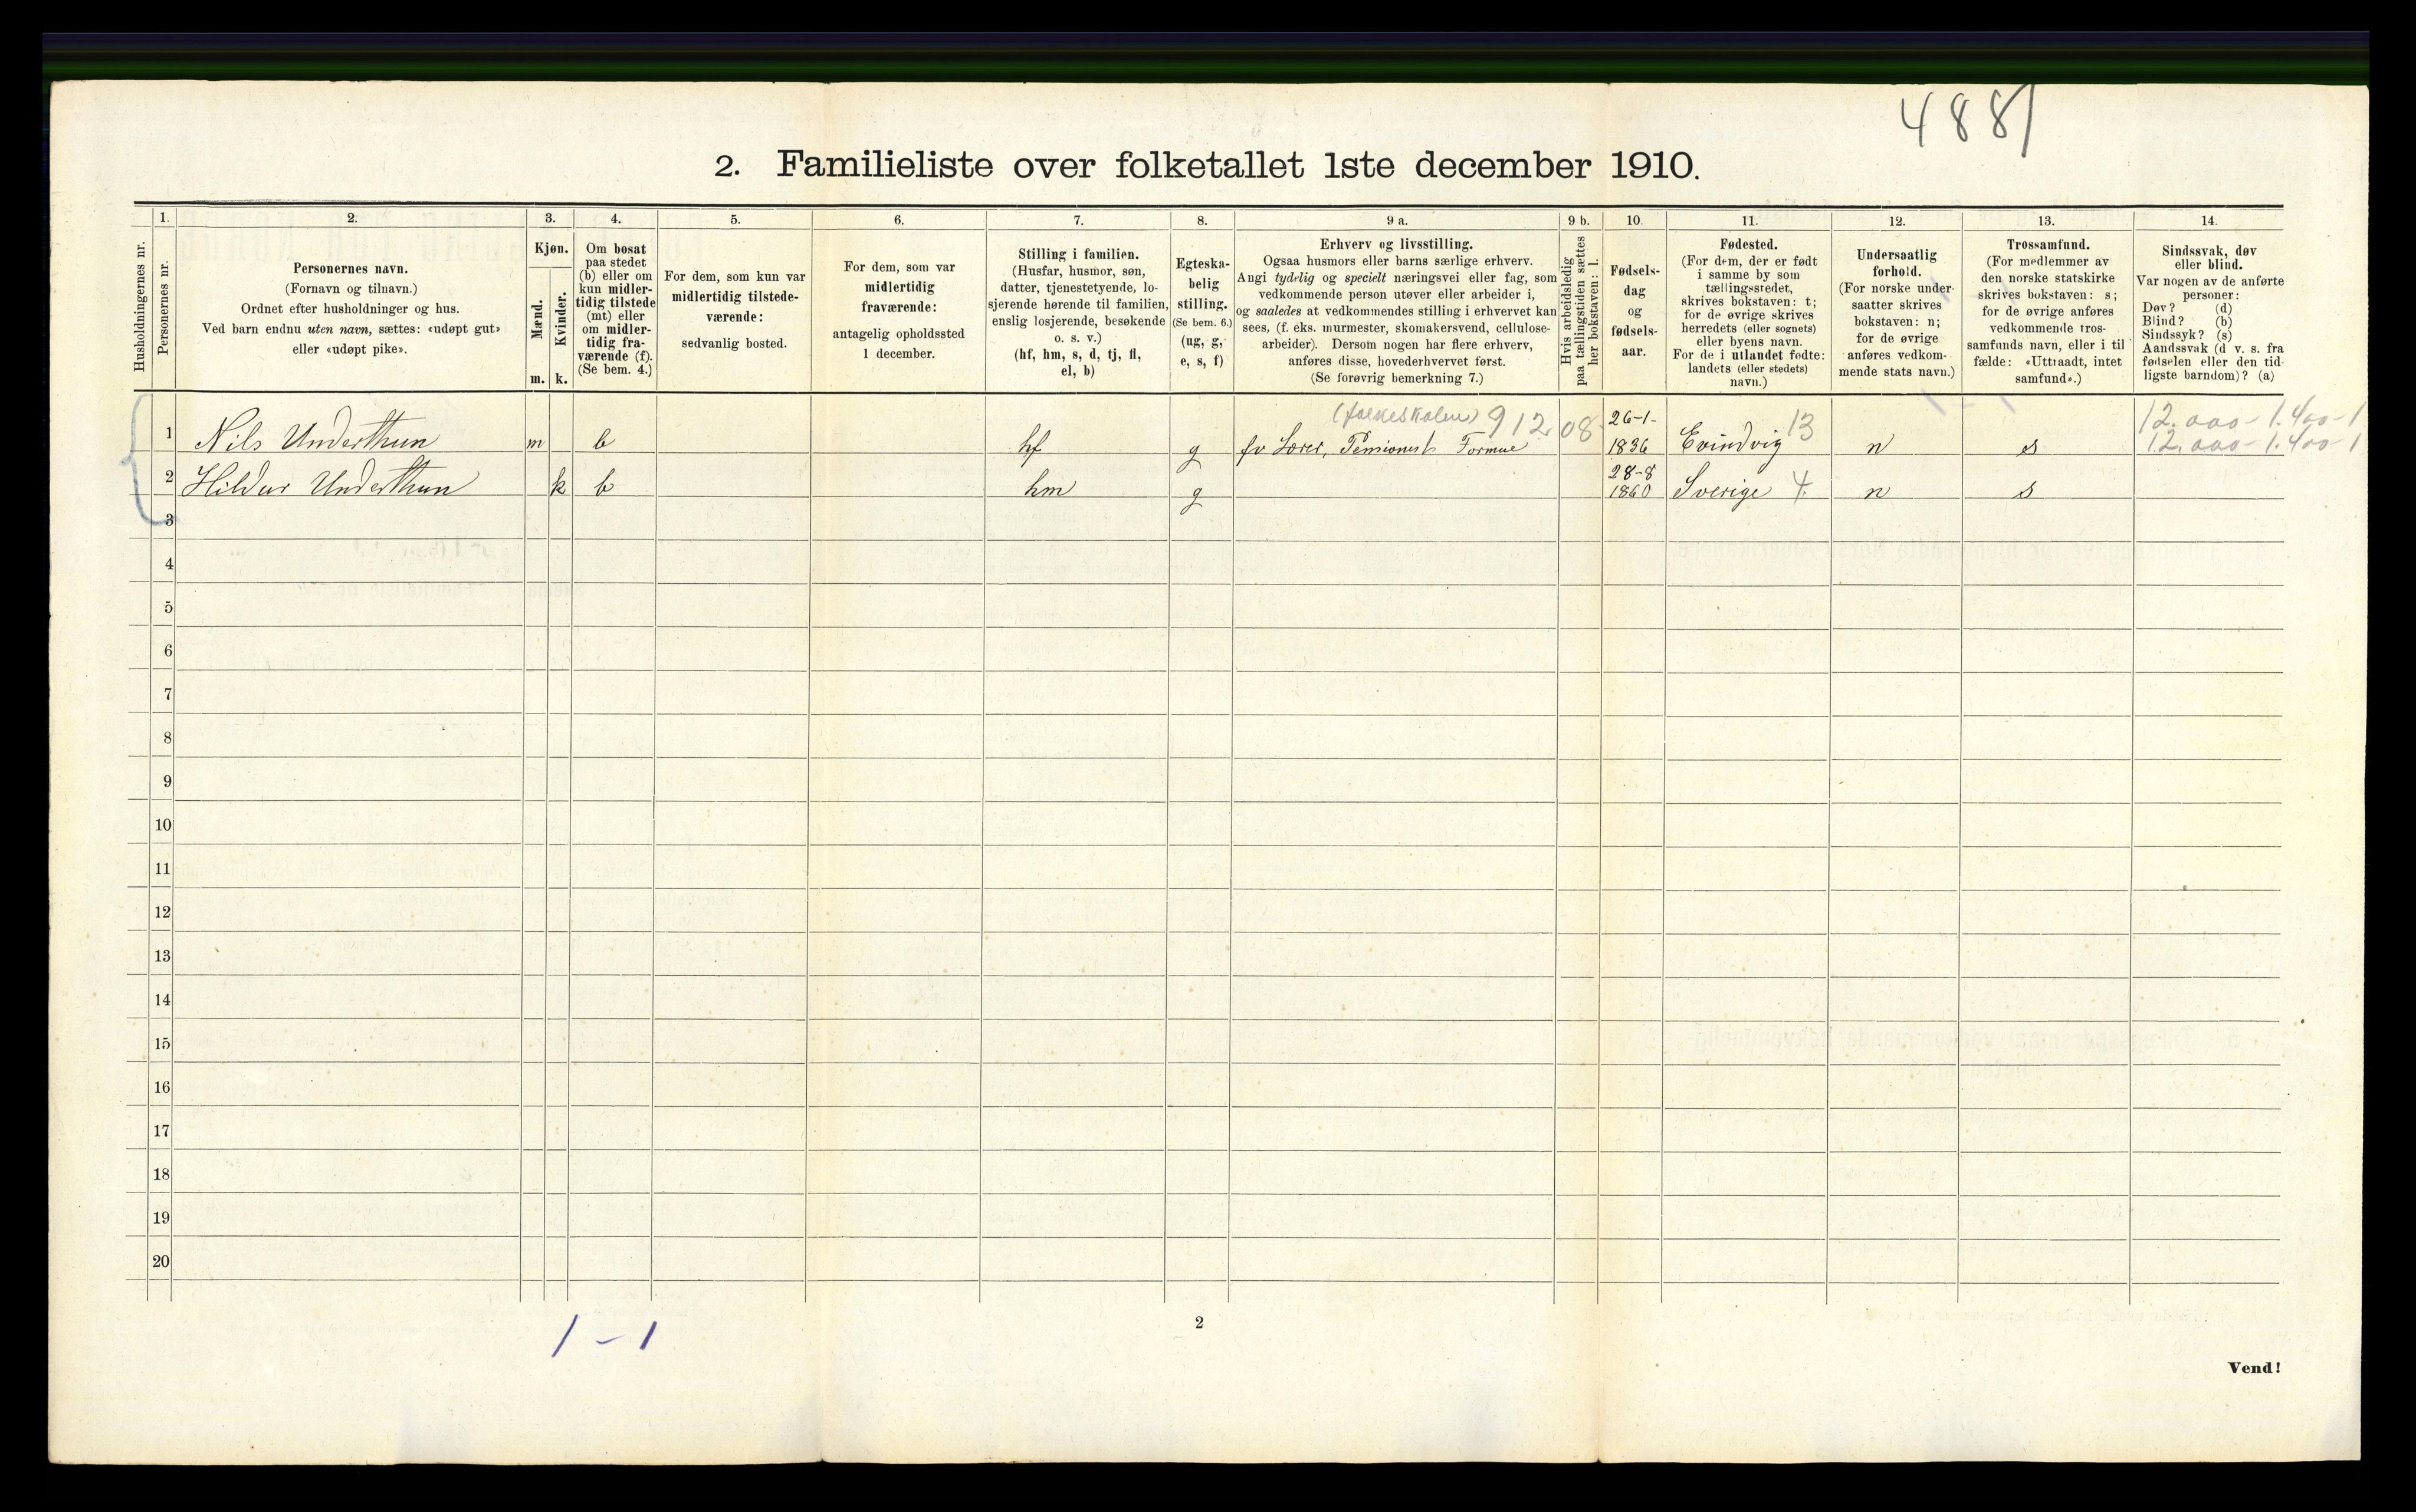 4881
2. Familieliste over folketallet 1ste december 1910.
Husholdningernes nr.
1.
Personernes nr.
2.
Personernes navn.
(Fornavn og tilnavn.)
Ordnet efter husholdninger og hus.
Ved barn endnu uten navn, sættes: «udøpt gut»
eller «udøpt pike».
3.
Kjøn.
Mænd.
m.
Kvinder.
k.
4.
Om bosat
paa stedet
(b) eller om
kun midler-
tidig tilstede
(mt) eller
om midler-
tidig fra-
værende (f).
(Se bem. 4.)
5.
For dem, som kun var
midlertidig tilstede-
værende:
sedvanlig bosted.
6.
For dem, som var
midlertidig
fraværende:
antagelig opholdssted
1 december.
7.
Stilling i familien.
(Husfar, husmor, søn,
datter, tjenestetyende, lo-
sjerende hørende til familien,
enslig losjerende, besøkende
o. s. v.)
(hf, hm, s, d, tj, fl,
el, b)
8.
Egteska-
belig
stilling.
(Se bem. 6.)
(ug, g,
e, s, f)
9 a.
Erhverv og livsstilling.
Ogsaa husmors eller barns særlige erhverv.
Angi tydelig og specielt næringsvei eller fag, som
vedkommende person utøver eller arbeider i,
og saaledes at vedkommendes stilling i erhvervet kan
sees, (f. eks. murmester, skomakersvend, cellulose-
arbeider). Dersom nogen har flere erhverv,
anføres disse, hovederhvervet først.
(Se forøvrig bemerkning 7.)
9 b.
Hvis arbeidsledig
paa tællingstiden sættes
her bokstaven: l.
10.
Fødsels-
dag
og
fødsels-
aar.
11.
Fødested.
(For dem, der er født
i samme by som
tællingsstedet,
skrives bokstaven: t;
for de øvrige skrives
herredets (eller sognets)
eller byens navn.
For de i utlandet fødte:
landets (eller stedets)
navn.)
12.
Undersaatlig
forhold.
(For norske under-
saatter skrives
bokstaven: n;
for de øvrige
anføres vedkom-
mende stats navn.)
13.
Trossamfund.
(For medlemmer av
den norske statskirke
skrives bokstaven: s;
for de øvrige anføres
vedkommende tros-
samfunds navn, eller i til
fælde: «Uttraadt, intet
samfund».)
14.
Sindssvak, døv
eller blind.
Var nogen av de anførte
personer:
Døv? (d)
Blind? (b)
Sindssyk? (s)
Aandssvak (d v. s. fra
fødselen eller den tid-
ligste barndom)? (a)
(folkeskolen) 912 08 26-1- 13 12.000-1.400-1
1 Nils Underthun m b hf g fv Lærer, Pensionist Formue 1836 Evindvig n s 12.000-1.400-1
28-8
2 Hildur Underthun k b hm g 1860 Sverige 4. n s
3
4
5
6
7
8
9
10
11
12
13
14
15
16
17
18
19
20
1-1
2
Vend!